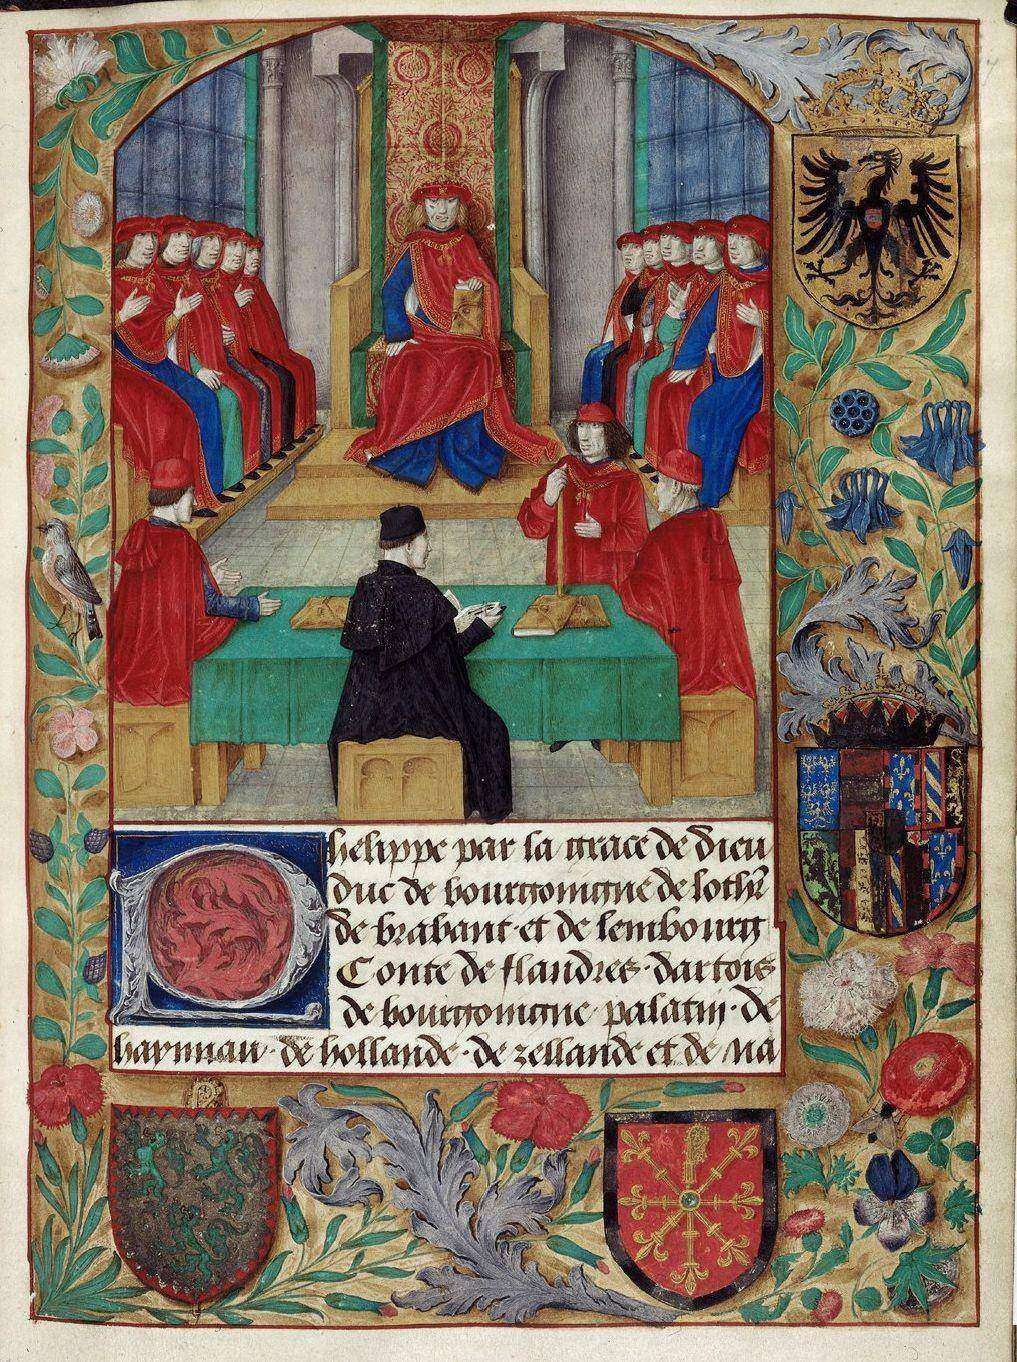 Phelippe par la grace de dieu
duc de bourgoingne de lothr
de brabant et de lembourg
Conte de flandres · dartois
de bourgoingne palatin · de
haynnau · de hollande · de zellande et de Na